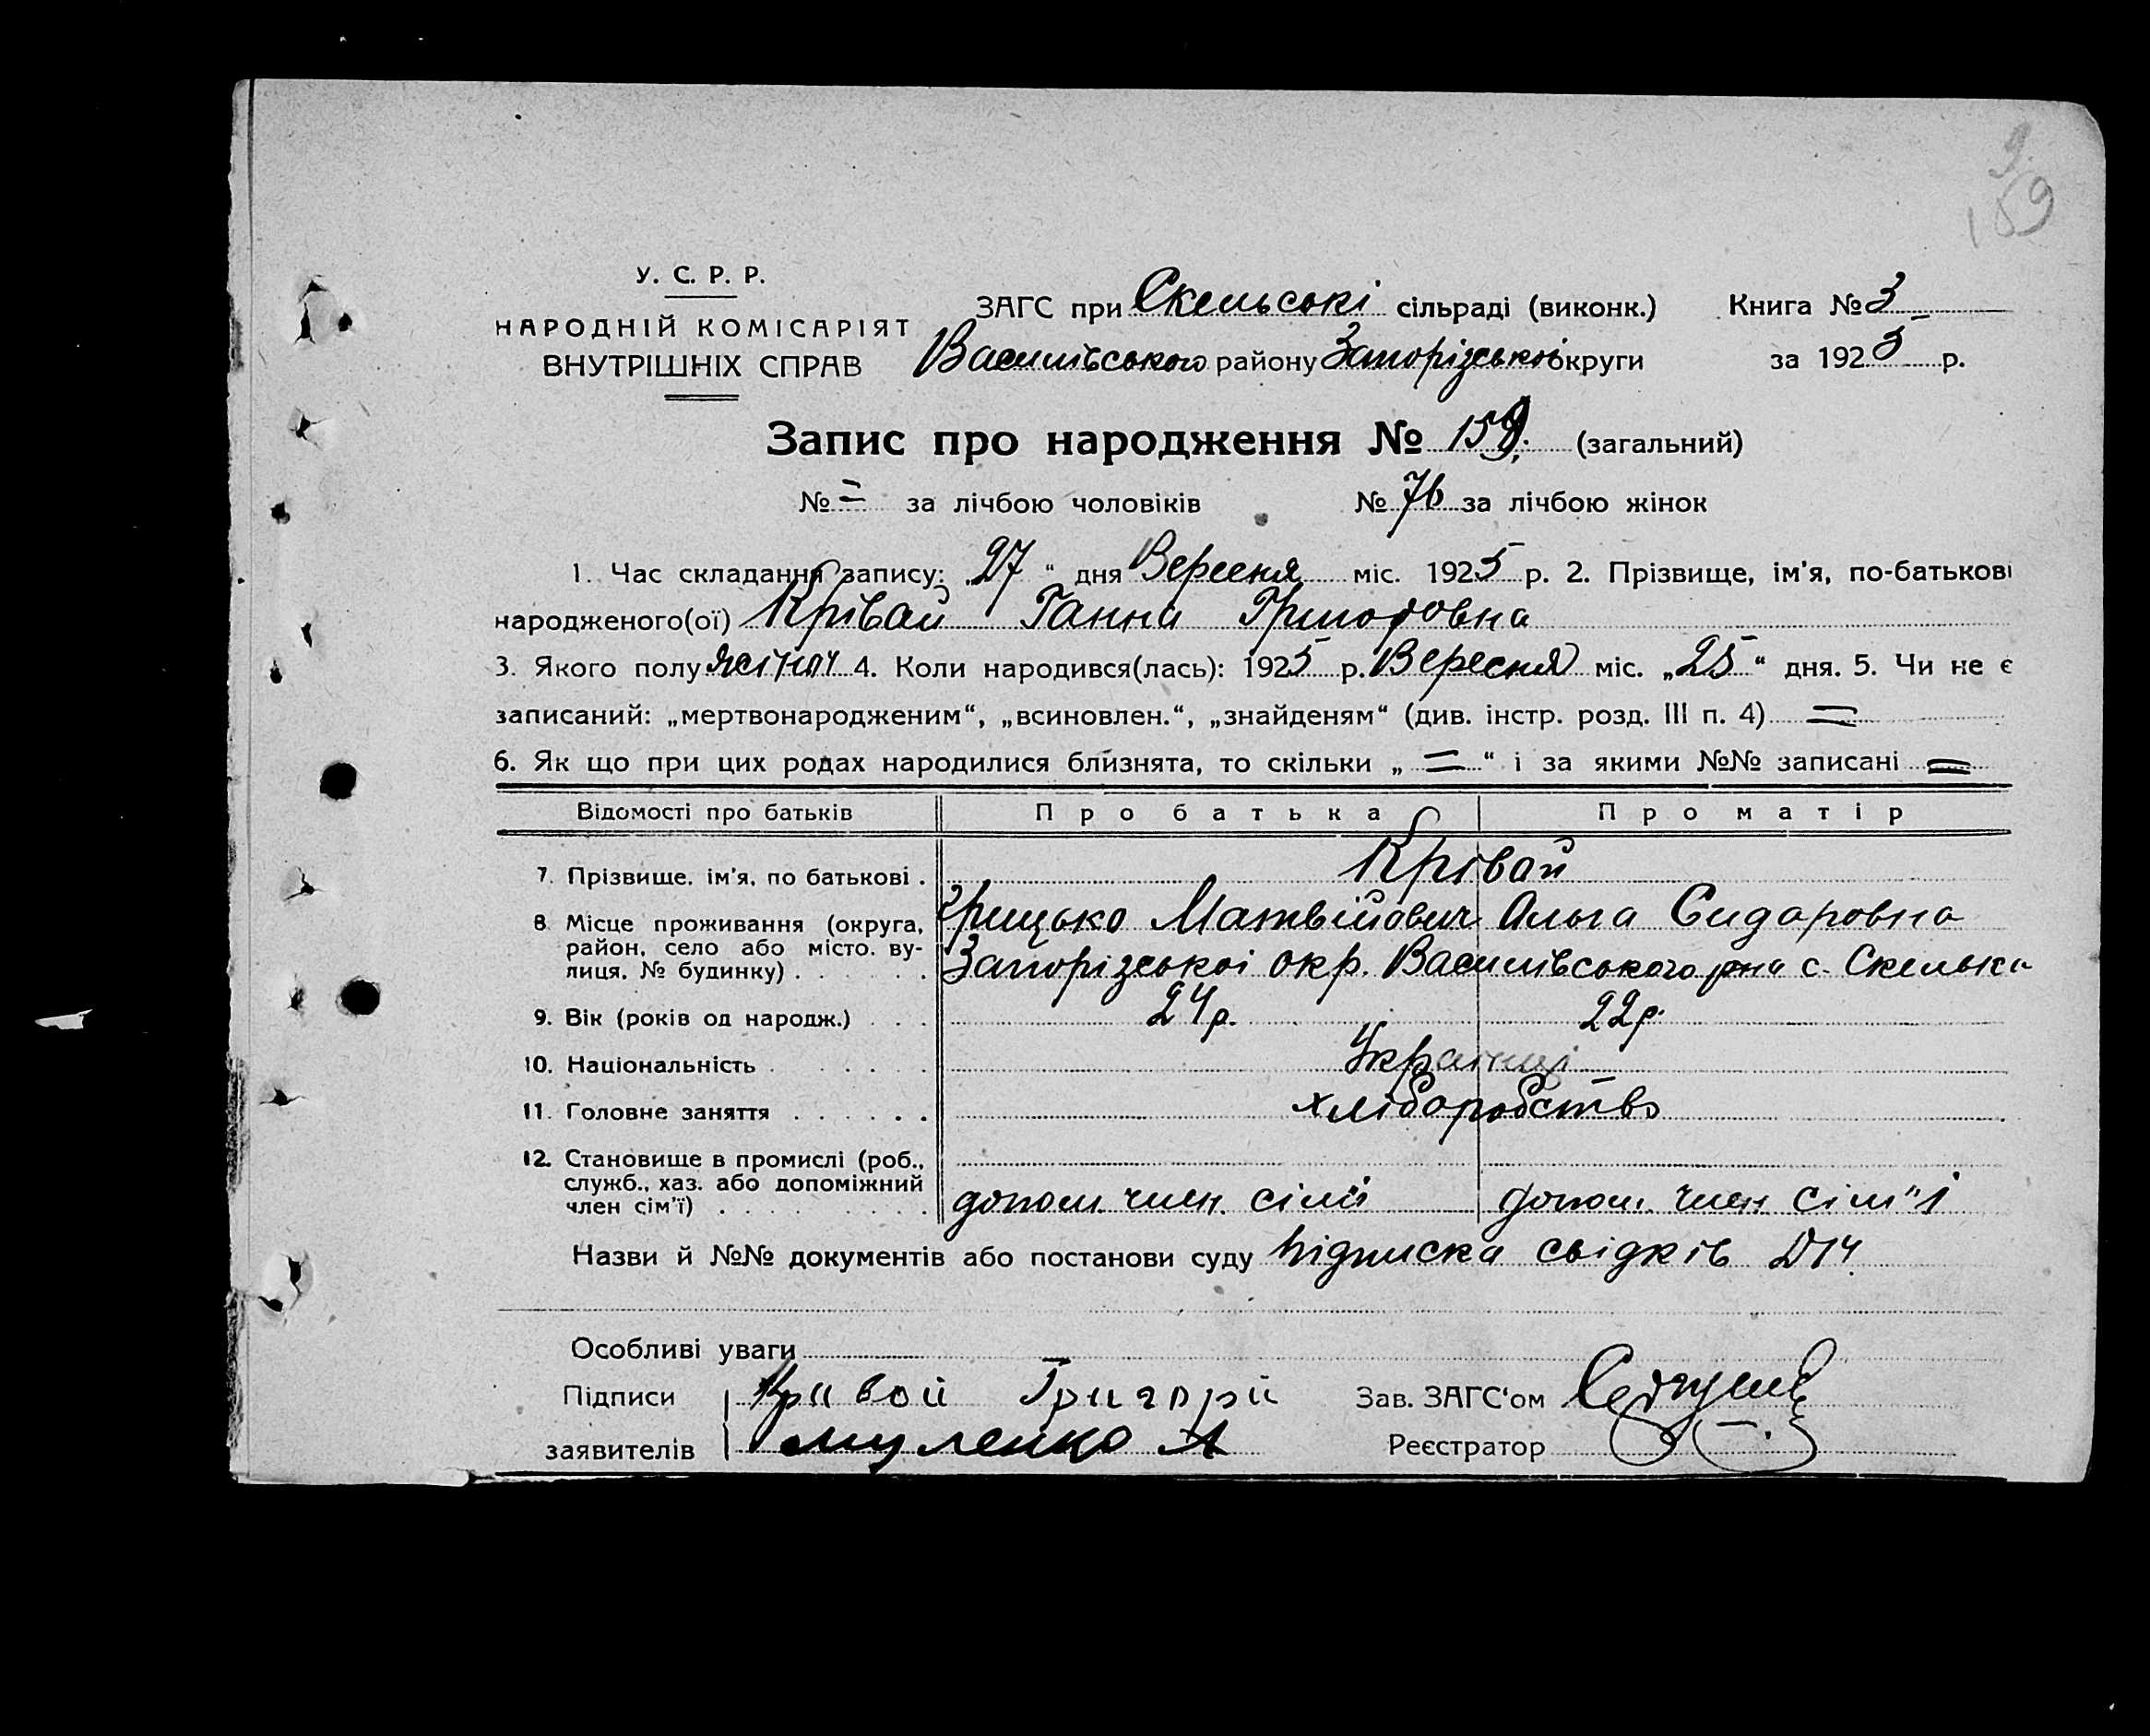 9.
159
У. С. Р. Р.
НАРОДНІЙ КОМІСАРІЯТ
ВНУТРІШНІХ СПРАВ
ЗАГС при Скельські сільраді (виконк.) Книга № 3
Василівського району Запорізькоі округи за 1925 р.
Запис про народження № 159. (загальний)
№ = за лічбою чоловіків № 76 за лічбою жінок
1. Час складання запису: „27“ дня Вересня міс. 1925 р. 2. Прізвище, ім'я, по-батькові
народженого(ої) Крівай Ганна Григоровна
3. Якого полу жіноч 4. Коли народився(лась): 1925 р. Вересня міс. „25“ дня. 5. Чи не є
записаний: „мертвонародженим“, „всиновлен.“, „знайденям“ (див. інстр. розд. III п. 4) =
6. Як що при цих родах народилися близнята, то скільки „=“ і за якими №№ записані =
Відомості про батьків Про батька Про матір
7. Прізвище, ім'я, по батькові . Крівай
Грицько Матвійович Ольга Сидоровна
8. Місце проживання (округа, район, село або місто, вулиця, № будинку) . Запорізькоі окр. Василівського рна с. Скелька
9. Вік (років од народж.) . . . 24р. 22р.
10. Національність . Українці
11. Головне заняття . хліборобство
12. Становище в промислі (роб., служб., хаз. або допоміжний член сім'ї) . допом. член. сімї допом. член сім"ї
Назви й №№ документів або постанови суду підписка свідків
Особливі уваги
Підписи Кривой Григорий Зав. ЗАГС'ом
заявителів Реєстратор